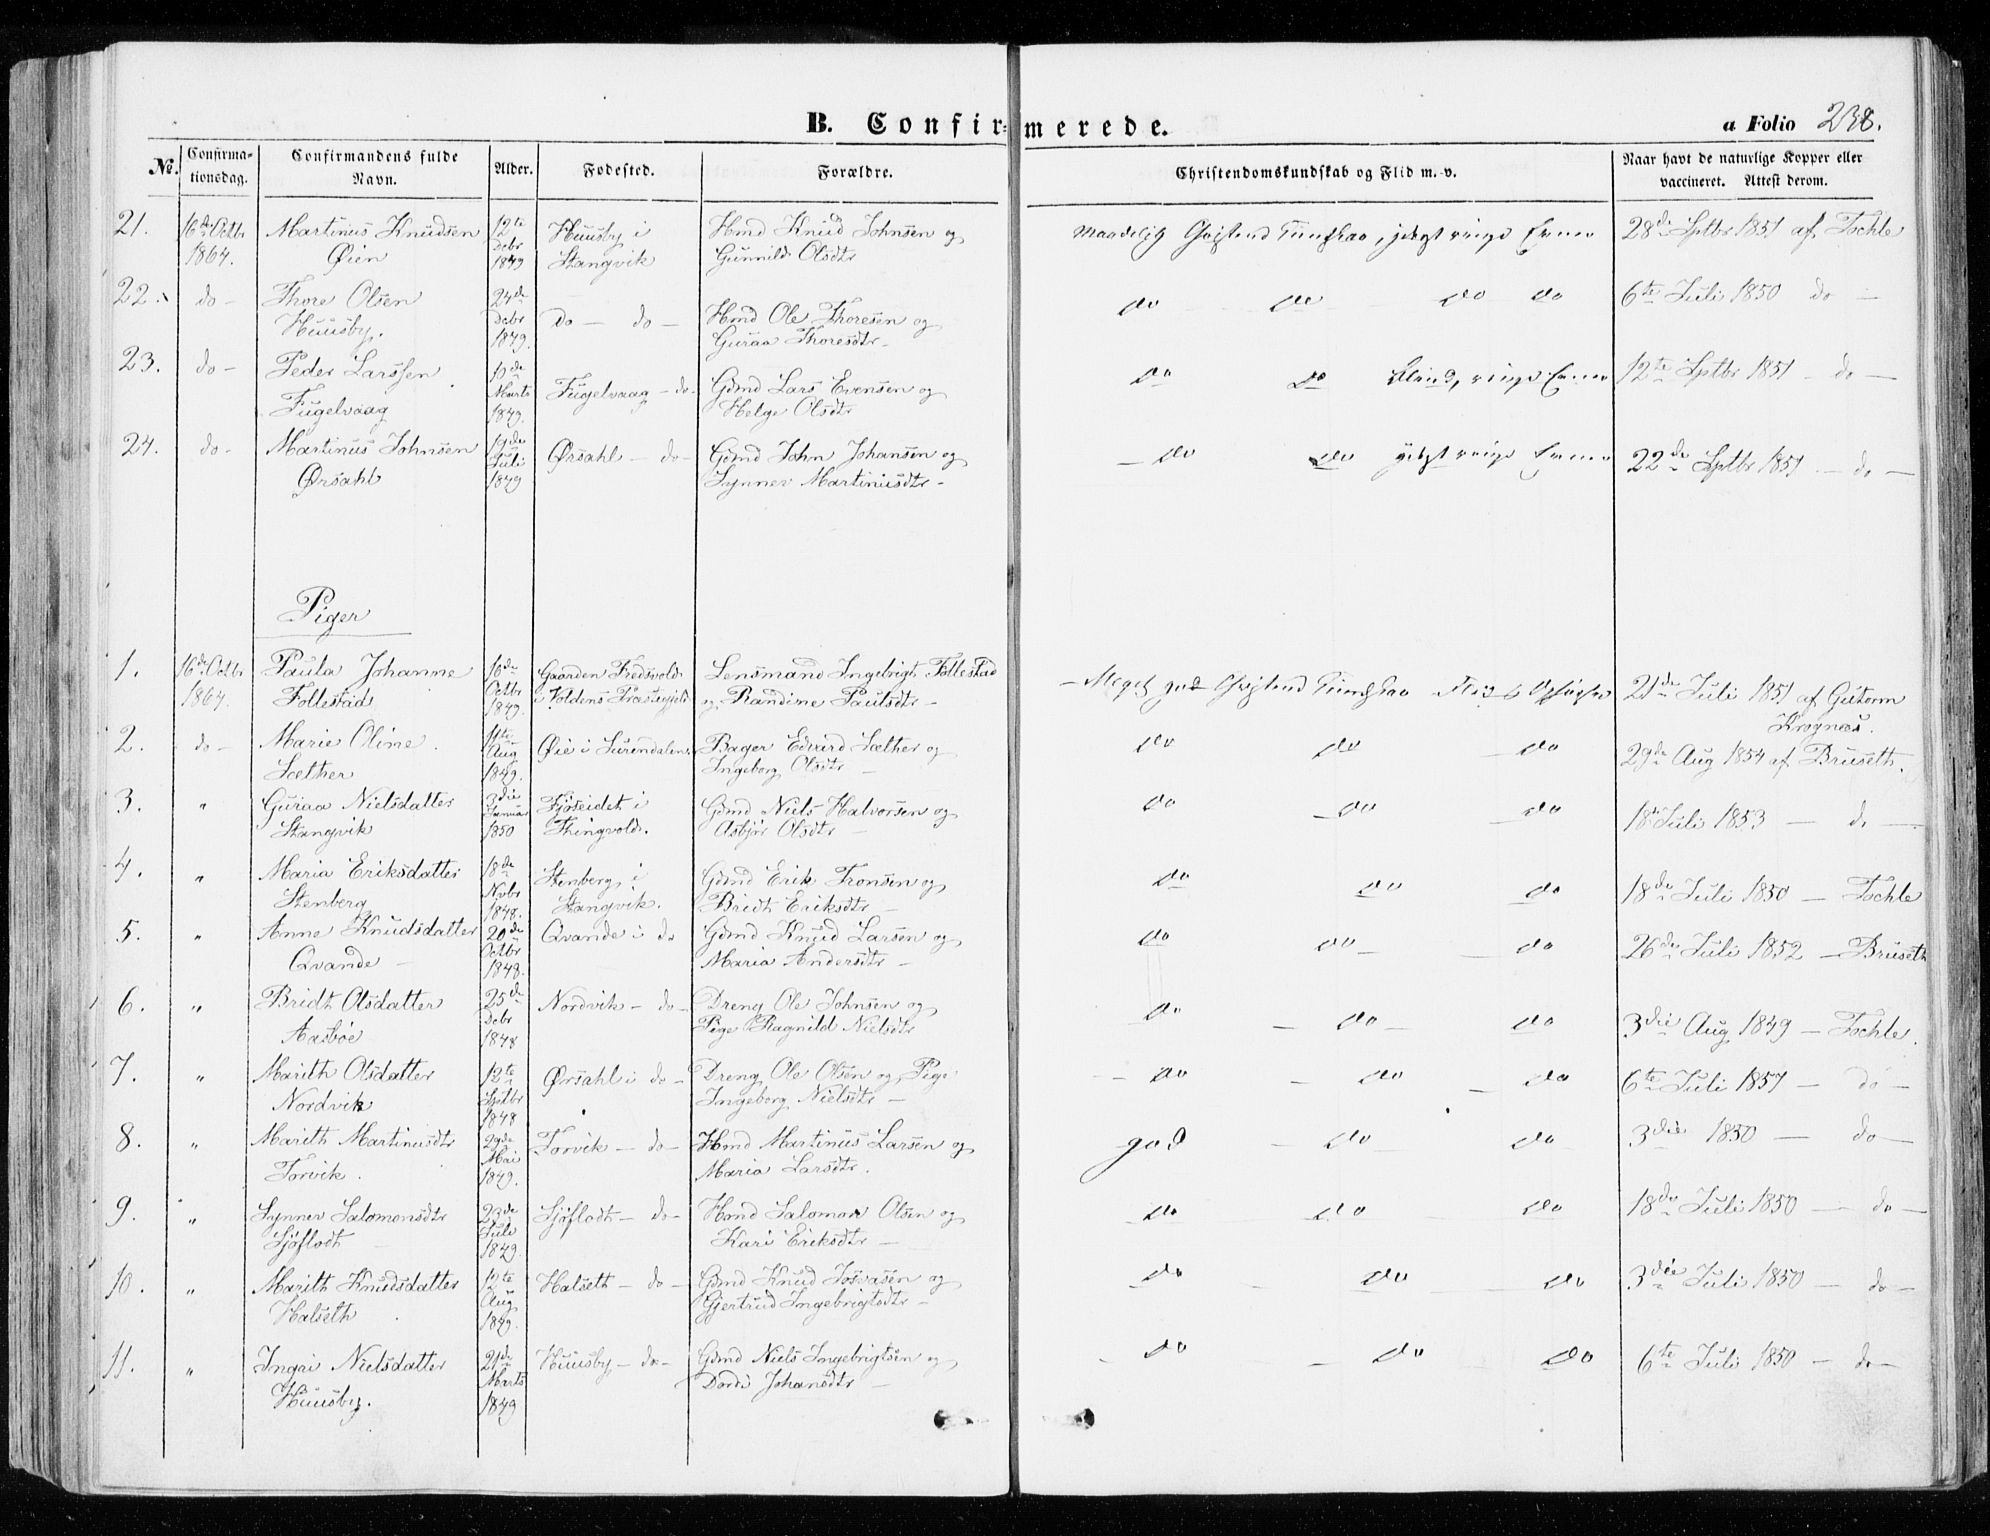 B. Confirmerede.
a Folio 238.
No. Confirmationsdag. Confirmandens fulde Navn. Alder. Fødested. Forældre. Christendomskundskab og Flid m. v. Naar havt de naturlige Kopper eller vaccineret. Attest derom.
21. 16de Octbr 1864. Martinus Knudsen Øien 12te Debr 1849 Huusby i Stangvik Hmd Knud Johnsen og Gunnild Olsdtr maadelig 28de Sptbr 1851 af Tochle
22. do - Thore Olsen Huusby. 24de Debr 1849. Do - do - Hmd Ole Thoresen og Guraa Thoresdtr - do do do do 6te Juli 1850 do -
23. do - Peder Larssen Fugelvaag Marts 1849. Fugelvaag - do - Gdmd Lars Evensen og Helge Olsdtr do do 12te Sptbr 1851 - do -
24. do - Martinus Johnsen Ørsahl Juli 1849 Ørsahl - do - Gdmd John Johansen og Synnev Martinusdtr - - do do 22de Sptbr 1851 - do -
Piger
1. 16de Octbr 1864. Paula Johanne Follestad 10de Octbr 1849. Gaarden Fredsvold i Voldens Præstegjeld Lensmand Ingebrigt Follestad og Randine Paulsdtr - - Meget god 21de Juli 1851 af Gutorm Krognæs.
2. do - Marie Oline Sæther 11te Aug 1849. Øie i Surendalen Bager Edvard Sæther og Ingeborg Olsdtr - do do - do 29de Aug 1854 af Bruseth.
3. " Guraa Nielsdatter Stangvik 3die Januar 1850 Fjøseidet i Thingvold. Gdmd Niels Halvorsen og Asbjør Olsdtr - do - do - do 18de Juli 1853 - do -
4. " Maria Eriksdatter Stenberg 18de Nvbr 1848. Stenberg i Stangvik. Gdmd Erik Tronsen og Bridt Eriksdtr - do do do 18de Juli 1850 - Tochle
5. " Anne Knudsdatter Qvande - 20de Octbr 1848. Qvande i do Gdmd Knud Larsen og Maria Andersdtr - do do - - do 26de Juli 1852 - Bruseth
6. " Bridt Olsdatter Aasbøe 25de Debr 1848 Nordvik - do - Dreng Ole Johnsen og Pige Ragnild Nielsdtr do - do - do 3die Aug 1849 - Tochle.
7. " Marith Olsdatter Nordvik 12te Sptbr 1848 Ørsahl i do - Dreng Ole Olsen og Pige Ingeborg Nielsdtr - - do - do - do 6te Juli 1857 - do -
8. " Marith Martinusdtr Torvik. 29de Mai 1849. Torvik - do - Hmd Martinus Larsen og Maria Larsdtr. god - do do 3die 1850 - do -
9. " Synnev Salomonsdtr Sjøflodt - 23de Juli 1849. Sjøflodt - do - Hmd Salomon Olsen og Kari Eriksdtr - do do do 18de Juli 1850 - do -
10. " Marith Knudsdatter Halseth 12te Aug 1849. Halseth - do - Gdmd Knud Josvasen og Gjertrud Ingebrigtsdtr - do - do - do 3die Juli 1850 - do -
11. " Ingri Nielsdatter Huusby. 21de Marts 1849 Huusby - do - Gdmd Niels Ingebrigtsen og Dordi Johansdtr - - do - do do 6te Juli 1850 - do -